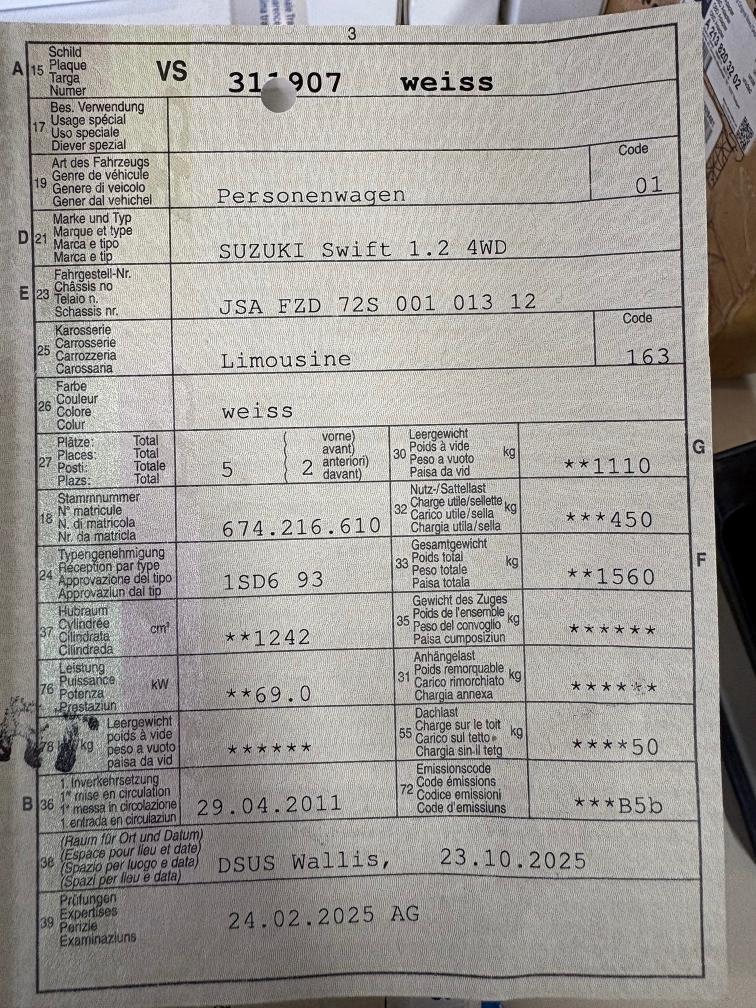 3
A 15 Schild
Plaque
Targa
Numer
VS 311907 weiss
17 Bes. Verwendung
Usage spécial
Uso speciale
Diever spezial
19 Art des Fahrzeugs
Genre de véhicule
Genere di veicolo
Gener dal vehichel
Personenwagen
Code
01
D 21 Marke und Typ
Marque et type
Marca e tipo
Marca e tip
SUZUKI Swift 1.2 4WD
E 23 Fahrgestell-Nr.
Châssis no
Telaio n.
Schassis nr.
JSA FZD 72S 001 013 12
25 Karosserie
Carrosserie
Carrozzeria
Carossaria
Limousine
Code
163
26 Farbe
Couleur
Colore
Colur
weiss
27 Plätze: Total
Places: Total
Posti: Totale
Plazs: Total
5
2
vorne)
avant)
anteriori)
davant)
30 Leergewicht
Poids à vide
Peso a vuoto
Paisa da vid
kg
**1110
G
18 Stammnummer
N° matricule
N. di matricola
Nr. da matricla
674.216.610
32 Nutz-/Sattellast
Charge utile/sellette
Carico utile/sella
Chargia utila/sella
kg
***450
24 Typengenehmigung
Réception par type
Approvazione del tipo
Approvaziun dal tip
1SD6 93
33 Gesamtgewicht
Poids total
Peso totale
Paisa totala
kg
**1560
F
37 Hubraum
Cylindrée
Cilindrata
Cilindrada
cm³
**1242
35 Gewicht des Zuges
Poids de l'ensemble
Peso del convoglio
Paisa cumposiziun
kg
******
76 Leistung
Puissance
Potenza
Prestaziun
kW
**69.0
31 Anhängelast
Poids remorquable
Carico rimorchiato
Chargia annexa
kg
******
78 kg Leergewicht
poids à vide
peso a vuoto
paisa da vid
******
55 Dachlast
Charge sur le toit
Carico sul tetto
Chargia sin il tetg
kg
****50
B 36 1. Inverkehrsetzung
1re mise en circulation
1a messa in circolazione
1. entrada en circulaziun
29.04.2011
72 Emissionscode
Code émissions
Codice emissioni
Code d'emissiuns
***B5b
38 (Raum für Ort und Datum)
(Espace pour lieu et date)
(Spazio per luogo e data)
(Spazi per lieu e data)
DSUS Wallis, 23.10.2025
39 Prüfungen
Expertises
Perizie
Examinaziuns
24.02.2025 AG
A 213 820 32 02